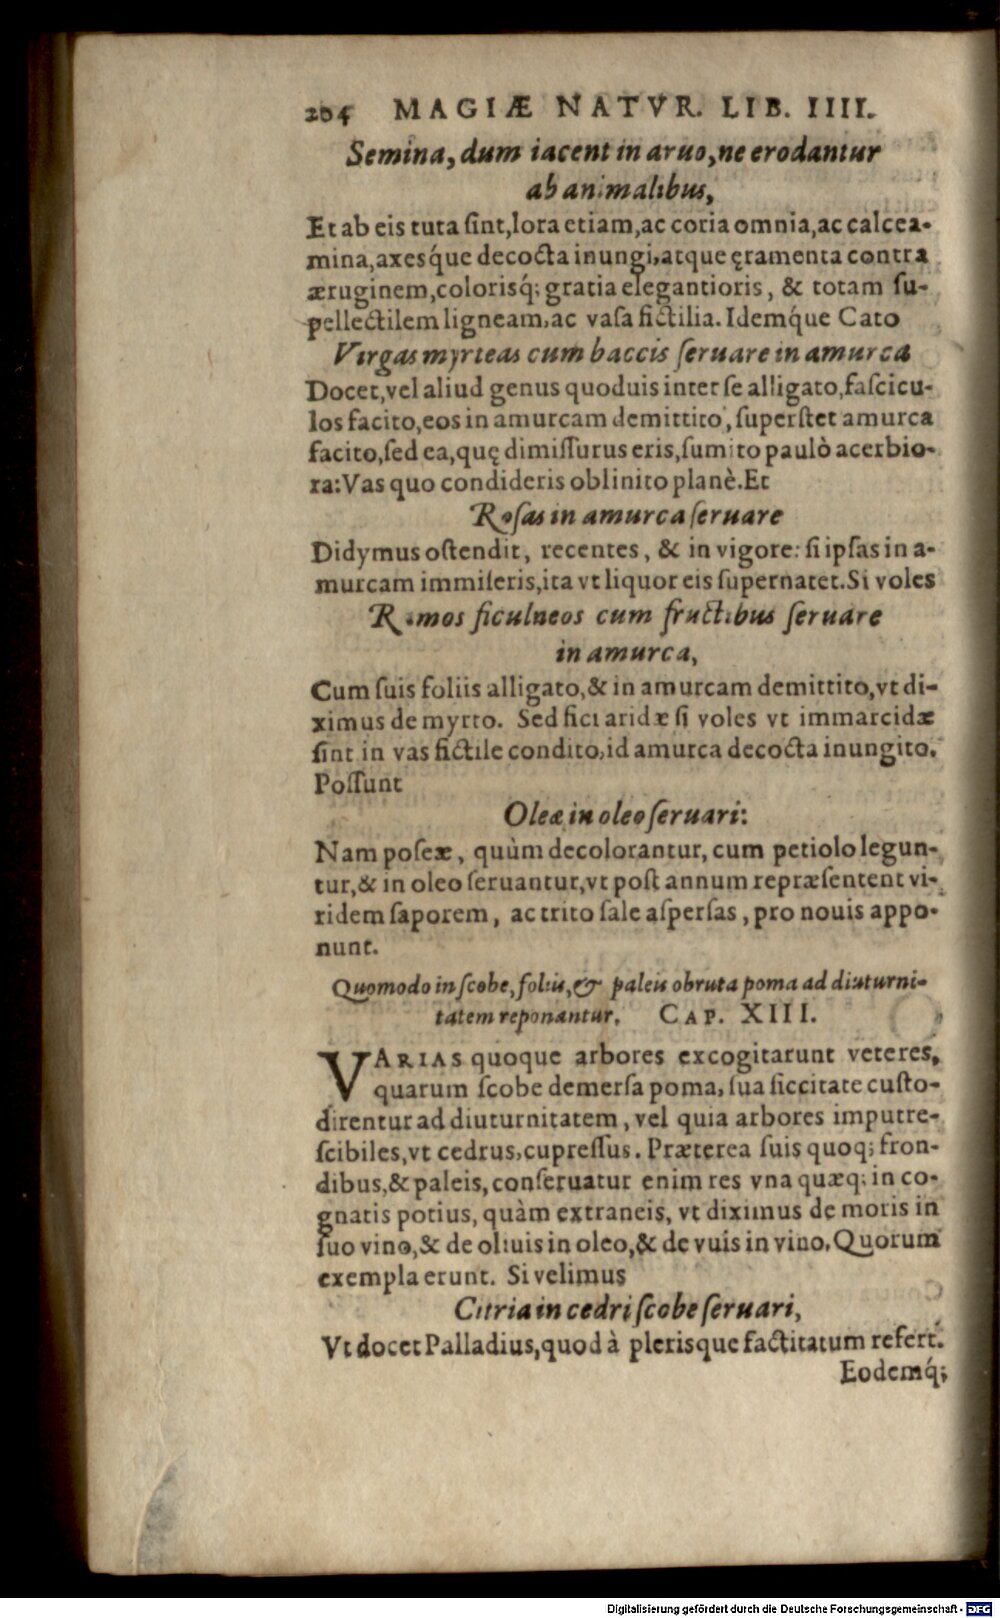 204 MAGIÆ NATVR. LIB. IIII.
Semina, dum iacent in aruo, ne erodantur
ab animalibus,
Et ab eis tuta ſint, lora etiam, ac coria omnia, ac calcea-
mina, axesq́ue decocta inungi, atque ęramenta contra
æruginem, colorisq́; gratia elegantioris, & totam ſu-
pellectilem ligneam, ac vaſa fictilia. Idemq́ue Cato
Virgas myrteas cum baccis ſeruare in amurca
Docet, vel aliud genus quoduis inter ſe alligato, faſcicu-
los facito, eos in amurcam demittito, ſuperſtet amurca
facito, ſed ea, quę dimiſſurus eris, ſumito paulò acerbio-
ra: Vas quo condideris oblinito planè. Et
Roſas in amurca ſeruare
Didymus oſtendit, recentes, & in vigore: ſi ipſas in a-
murcam immiſeris, ita vt liquor eis ſupernatet. Si voles
Ramos ficulneos cum fructibus ſeruare
in amurca,
Cum ſuis foliis alligato, & in amurcam demittito, vt di-
ximus de myrto. Sed fici aridæ ſi voles vt immarcidæ
ſint in vas fictile condito, id amurca decocta inungito.
Poſſunt
Oleæ in oleo ſeruari:
Nam poſeæ, quùm decolorantur, cum petiolo legun-
tur, & in oleo ſeruantur, vt poſt annum repræſentent vi-
ridem ſaporem, ac trito ſale aſperſas, pro nouis appo-
nunt.
Quomodo in ſcobe, foliis, & paleis obruta poma ad diuturni-
tatem reponantur. CAP. XIII.
VARIAS quoque arbores excogitarunt veteres,
quarum ſcobe demerſa poma, ſua ſiccitate cuſto-
direntur ad diuturnitatem, vel quia arbores imputre-
ſcibiles, vt cedrus, cupreſſus. Præterea ſuis quoq; fron-
dibus, & paleis, conſeruatur enim res vna quæq; in co-
gnatis potius, quàm extraneis, vt diximus de moris in
ſuo vino, & de oliuis in oleo, & de vuis in vino. Quorum
exempla erunt. Si velimus
Citria in cedri ſcobe ſeruari,
Vt docet Palladius, quod à plerisque factitatum refert.
Eodemq́;
Digitalisierung gefördert durch die Deutsche Forschungsgemeinschaft - DFG